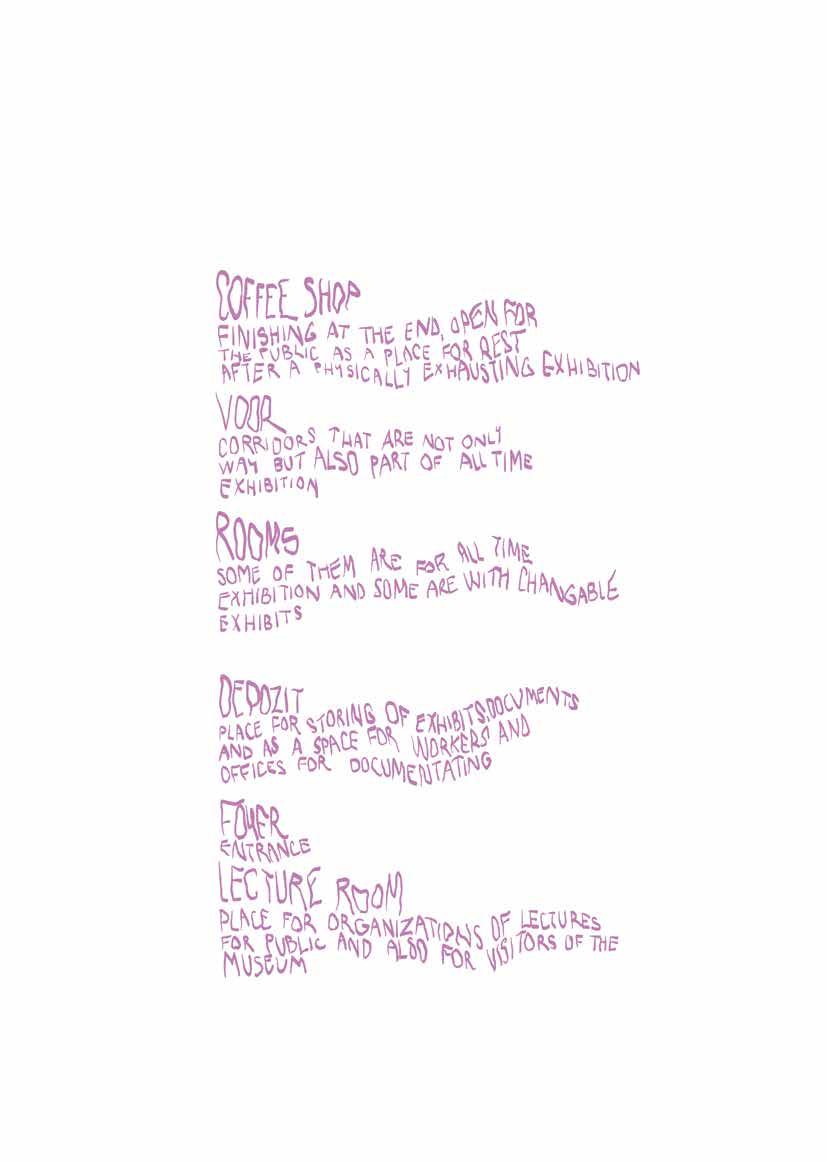 COFFEE SHOP
FINISHING AT THE END, OPEN FOR
THE PUBLIC AS A PLACE FOR REST
AFTER A PHYSICALLY EXHAUSTING EXHIBITION
VOOR
CORRIDORS THAT ARE NOT ONLY
WAY BUT ALSO PART OF ALL TIME
EXHIBITION
ROOMS
SOME OF THEM ARE FOR ALL TIME
EXHIBITION AND SOME ARE WITH CHANGABLE
EXHIBITS
DEPOZIT
PLACE FOR STORING OF EXHIBITS, DOCUMENTS
AND AS A SPACE FOR WORKERS AND
OFFICES FOR DOCUMENTATING
FOYER
ENTRANCE
LECTURE ROOM
PLACE FOR ORGANIZATIONS OF LECTURES
FOR PUBLIC AND ALSO FOR VISITORS OF THE
MUSEUM